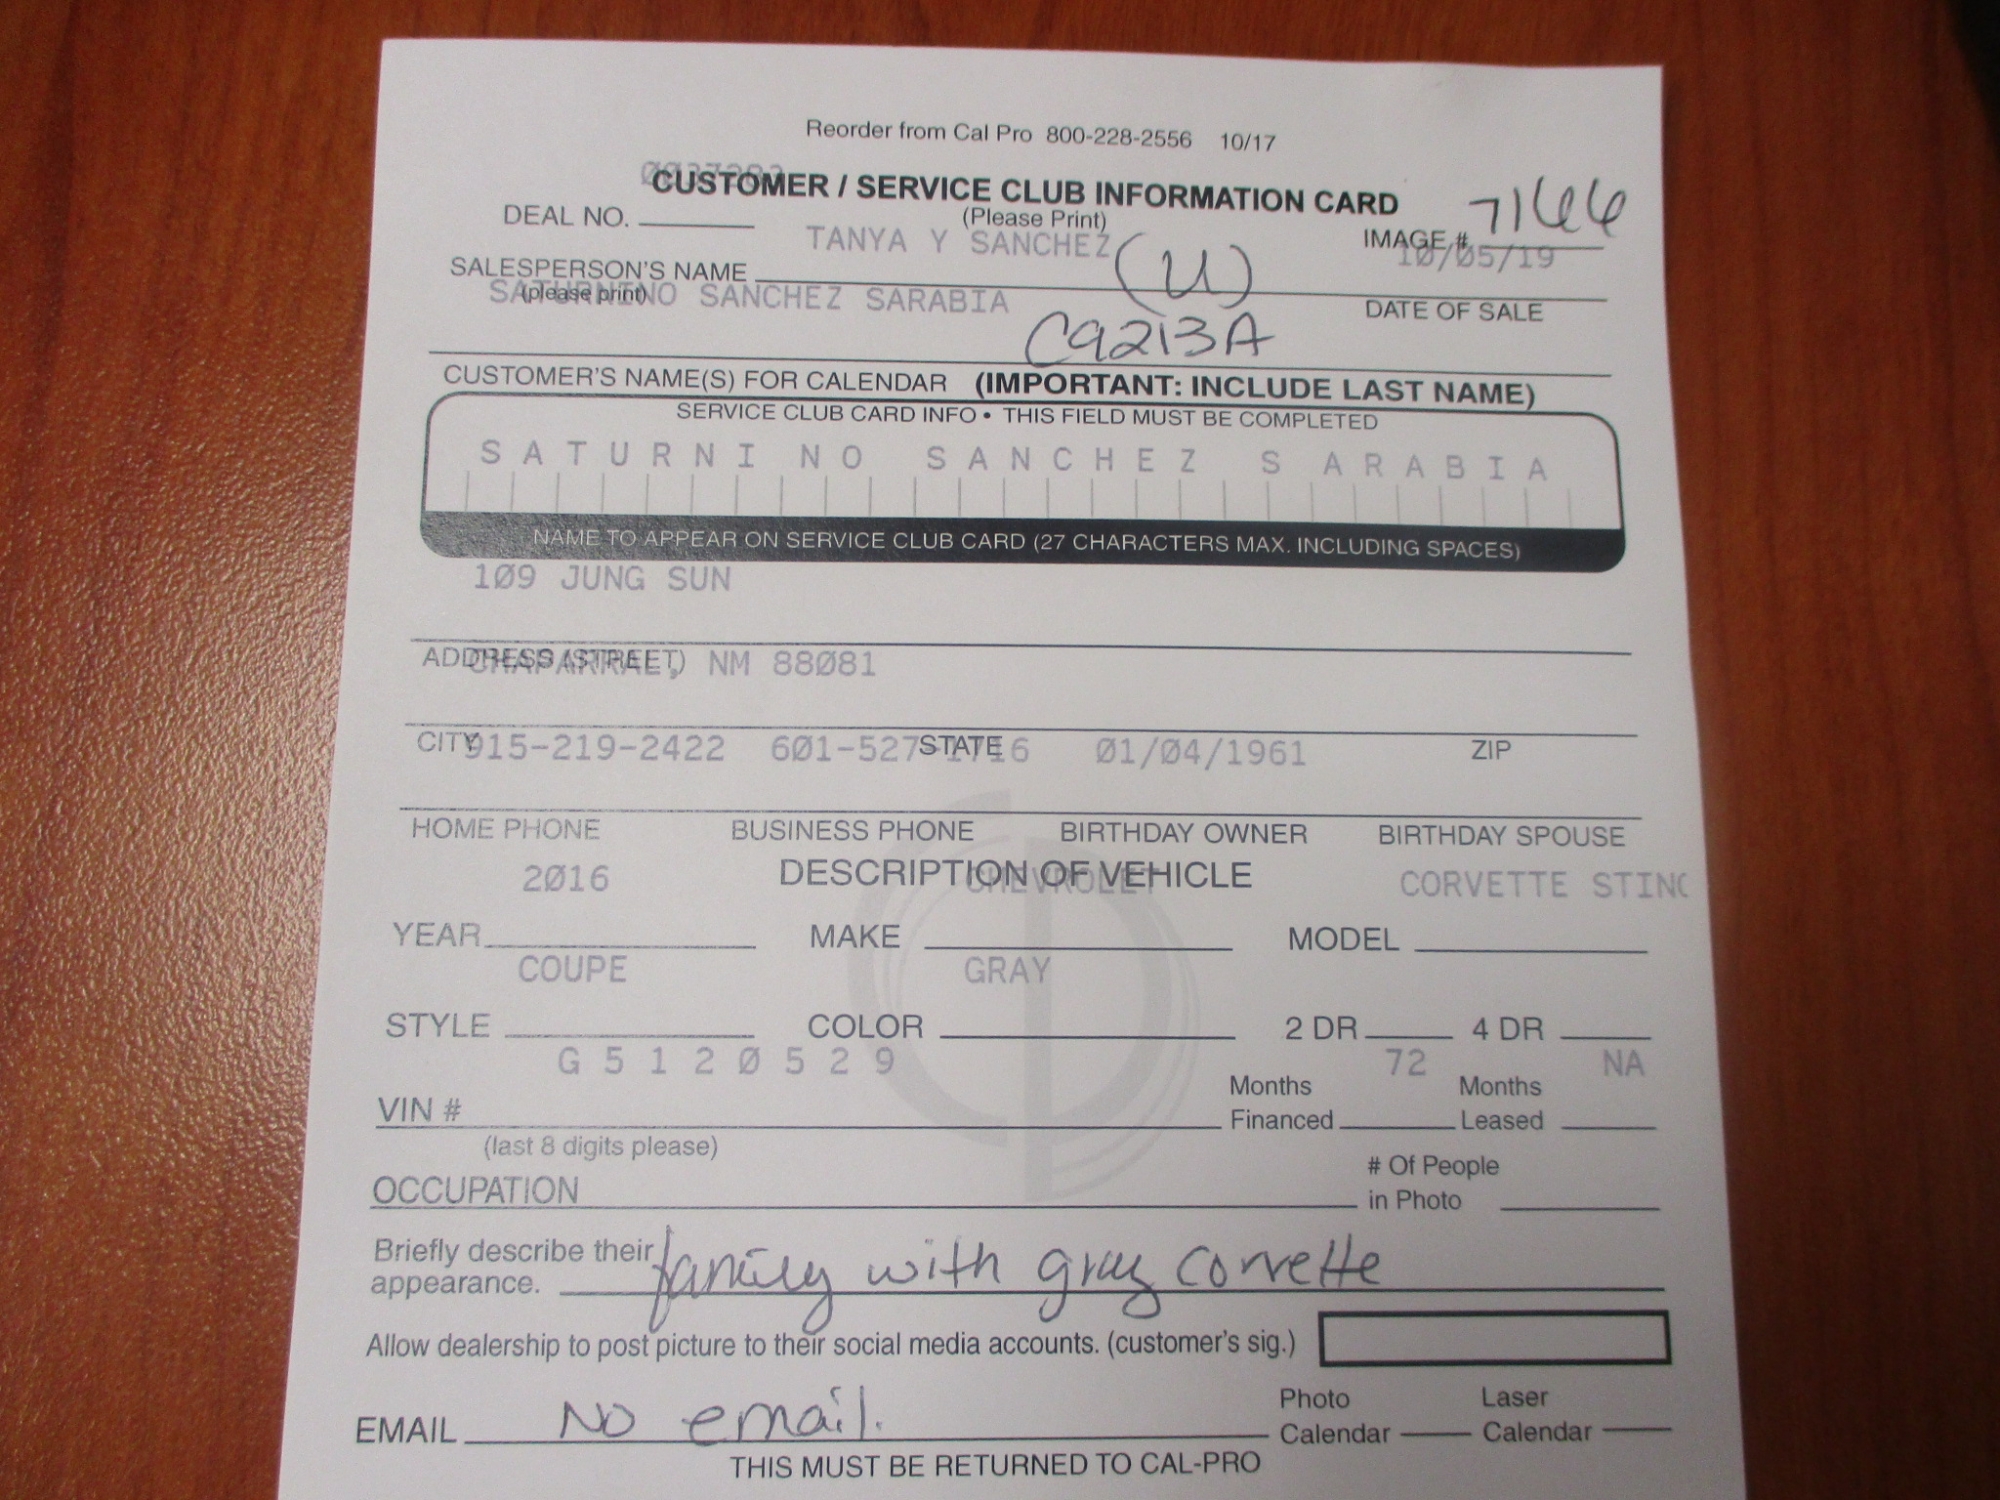 Reorder from Cal Pro 800-228-2556 10/17
CUSTOMER / SERVICE CLUB INFORMATION CARD
(Please Print)
DEAL NO.
IMAGE # 7166
TANYA Y SANCHEZ (U) 10/05/19
SALESPERSON'S NAME
(please print)
DATE OF SALE
SATURNINO SANCHEZ SARABIA
C9213A
CUSTOMER'S NAME(S) FOR CALENDAR (IMPORTANT: INCLUDE LAST NAME)
SERVICE CLUB CARD INFO • THIS FIELD MUST BE COMPLETED
SATURNINO SANCHEZ SARABIA
NAME TO APPEAR ON SERVICE CLUB CARD (27 CHARACTERS MAX. INCLUDING SPACES)
109 JUNG SUN
ADDRESS (STREET)
CHAPARRAL, NM 88081
CITY STATE ZIP
915-219-2422 601-527-1716 01/04/1961
HOME PHONE BUSINESS PHONE BIRTHDAY OWNER BIRTHDAY SPOUSE
DESCRIPTION OF VEHICLE
2016 CHEVROLET CORVETTE STING
YEAR MAKE MODEL
COUPE GRAY
STYLE COLOR 2 DR 4 DR
G5120529 72 NA
VIN # Months Financed Months Leased
(last 8 digits please)
OCCUPATION # Of People in Photo
Briefly describe their appearance. family with gray corvette
Allow dealership to post picture to their social media accounts. (customer's sig.)
EMAIL No email. Photo Calendar Laser Calendar
THIS MUST BE RETURNED TO CAL-PRO